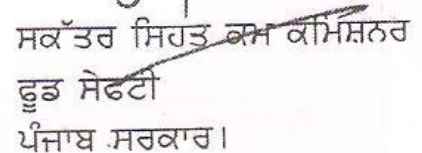 ਸਕੱਤਰ ਸਿਹਤ ਕਮ ਕਮਿਸ਼ਨਰ
ਫੂਡ ਸੇਫਟੀ
ਪੰਜਾਬ ਸਰਕਾਰ।